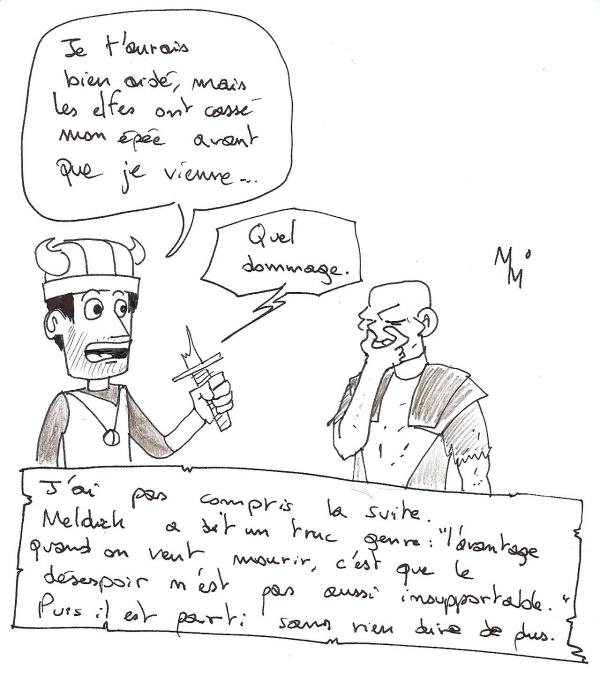 Je t'aurais
bien aidé, mais
les elfes ont cassé
mon épée avant
que je vienne...
Quel
dommage.
MM
J'ai pas compris la suite.
Meldrek a dit un truc genre: "l'avantage
quand on veut mourir, c'est que le
désespoir n'est pas aussi insupportable."
Puis il est parti sans rien dire de plus.